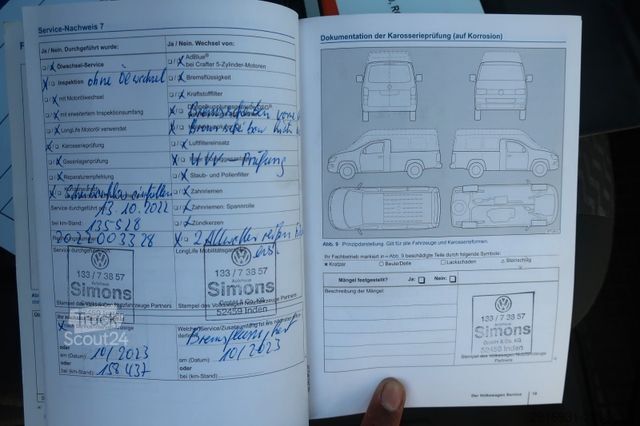 Service-Nachweis 7
Ja / Nein. Durchgeführt wurde:
Ja / Nein. Wechsel von:
Ölwechsel-Service
AdBlue®
bei Crafter 5-Zylinder-Motoren
Inspektion ohne Ölwechsel
Bremsflüssigkeit
mit Motorölwechsel
Kraftstofffilter
mit erweitertem Inspektionsumfang
Bremsscheiben
LongLife Motoröl verwendet
Bremsscheiben
Karosserieprüfung
Luftfiltereinsatz
Gasanlagenprüfung
UVV-Prüfung
Reparaturempfehlung
Staub- und Pollenfilter
Zahnriemen
Service durchgeführt am 13.10.2022
Zahnriemen: Spannrolle
bei km-Stand 135528
Zündkerzen
2022003328
2 Allwetter reifen
Service durchgeführt
LongLife Mobilitätsgarantie
133 / 7 38 57
Simons
133 / 7 38 57
Simons
GmbH & Co. KG
52459 Inden
Stempel des Volkswagen Nutzfahrzeuge Partners
Stempel des Volkswagen Nutzfahrzeuge Partners
Bremsflüssigkeit
oder
oder
am (Datum) 10/2023
am (Datum) 10/2023
oder
oder
bei (km-Stand) 158 437
bei (km-Stand)
Truck
Scout24
Dokumentation der Karosserieprüfung (auf Korrosion)
Abb. 9 Prinzipdarstellung. Gilt für alle Fahrzeuge und Karosserieformen.
Ihr Fachbetrieb markiert in → Abb. 9 beschädigte Teile durch folgende Symbole:
× Kratzer ○ Beule/Delle □ Lackschaden △ Steinschlag
Mängel festgestellt? Ja: Nein:
Beschreibung der Mängel:
133 / 7 38 57
Autohaus
Simons
GmbH & Co. KG
52459 Inden
Stempel des Volkswagen Nutzfahrzeuge
Partners
Der Volkswagen Service